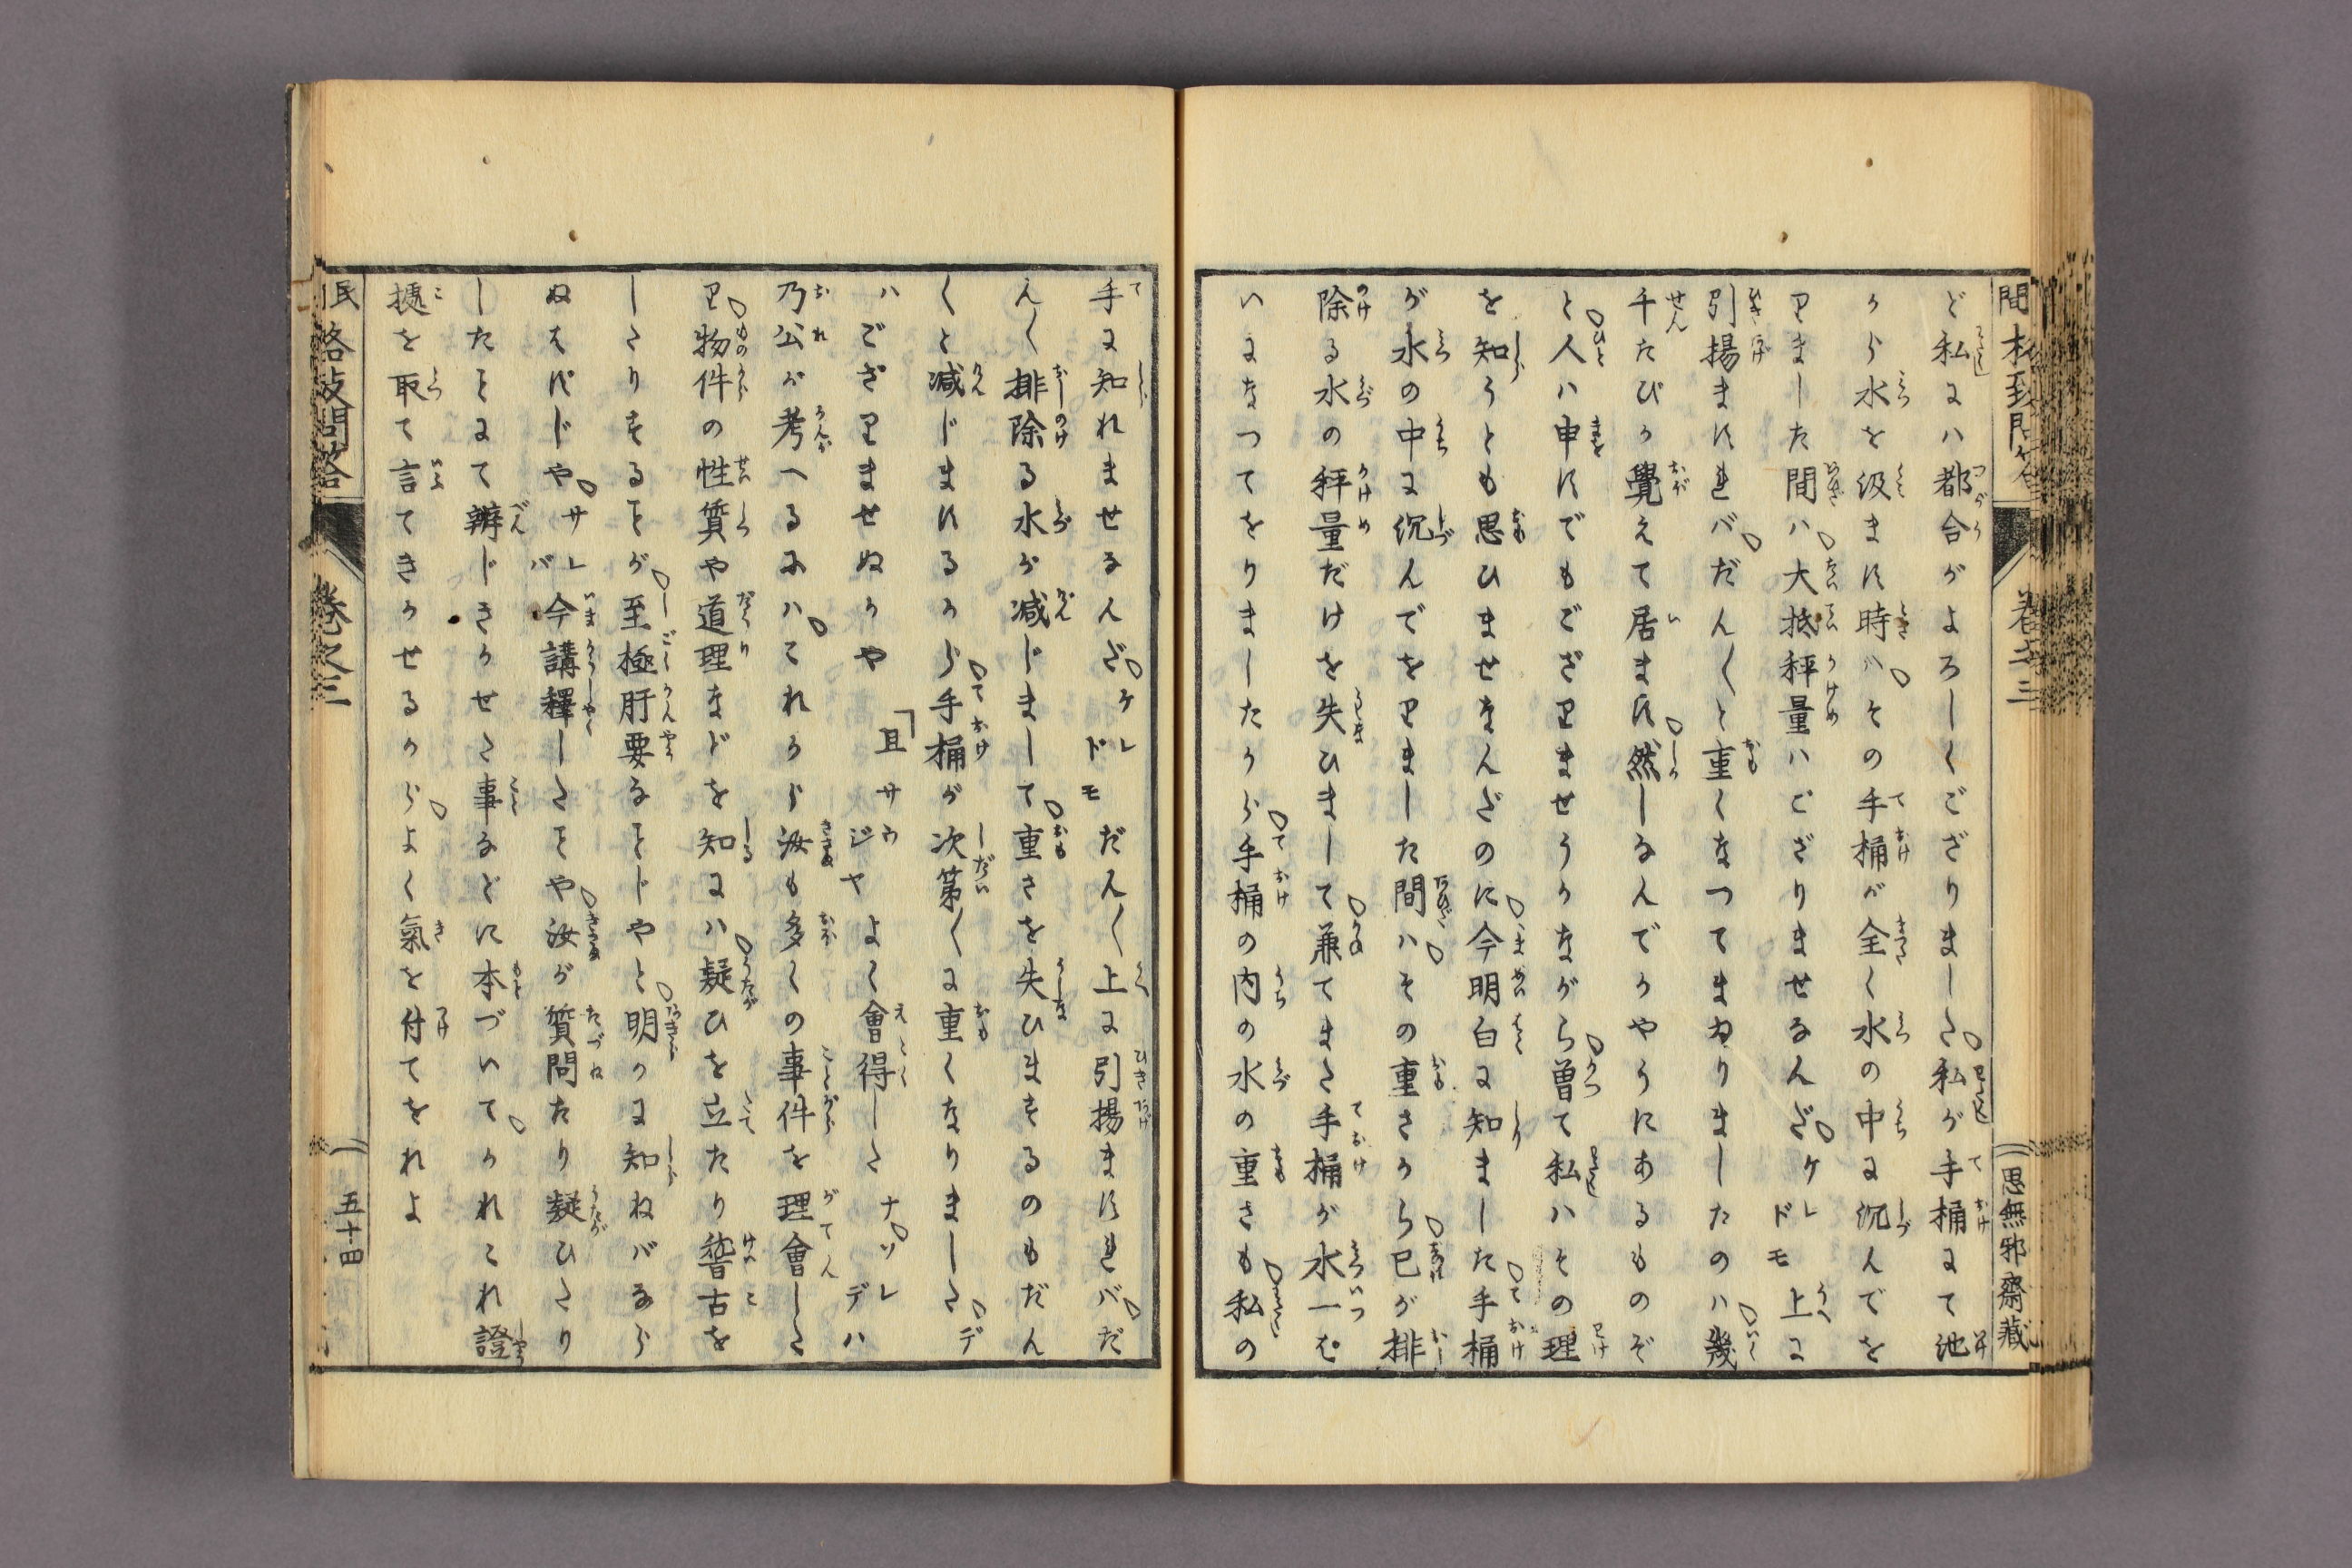 ど私にハ都合がよろしくござりました私が手桶にて池
から水を汲ます時ハその手桶が全く水の中に沉んでを
りました間ハ大抵秤量ハござりませなんだケレドモ上に
引揚ますればだん〱と重くなつてまゐりましたのハ幾
千たびか覺えて居ます然しなんでかやうにあるものぞ
と人ハ申すでもござりませうかながら曽て私ハその理
を知うとも思ひませなんだのに今明白に知ました手桶
が水の中に沉んでをりました間ハその重さから己が排
除る水の秤量だけを失ひまして兼てまた手桶が水一ぱ
いになつてをりましたから手桶の内の水の重さも私の
思無邪齋藏
手に知れませなんだケレドモだん〱上に引揚ますればだ
ん〱排除る水が減じまして重さを失ひまするのもだん
〱と減じまするから手桶が次第〱に重くなりましたデ
ハござりませぬかや 「且サウジヤよく會得したナソレデハ
乃公が考へるにハこれから汝も多くの事件を理會した
り物件の性質や道理などを知にハ疑ひを立たり稽古を
したりすることが至極肝要なことじやと明かに知ねばなら
ぬはづじやサレバ今講釋したことや汝が質問たり疑ひたり
したことにて辨じきかせた事などに本づいてかれこれ證
據を取て言てきかせるからよく氣を付てをれよ
民格致問答
巻之三
五十四